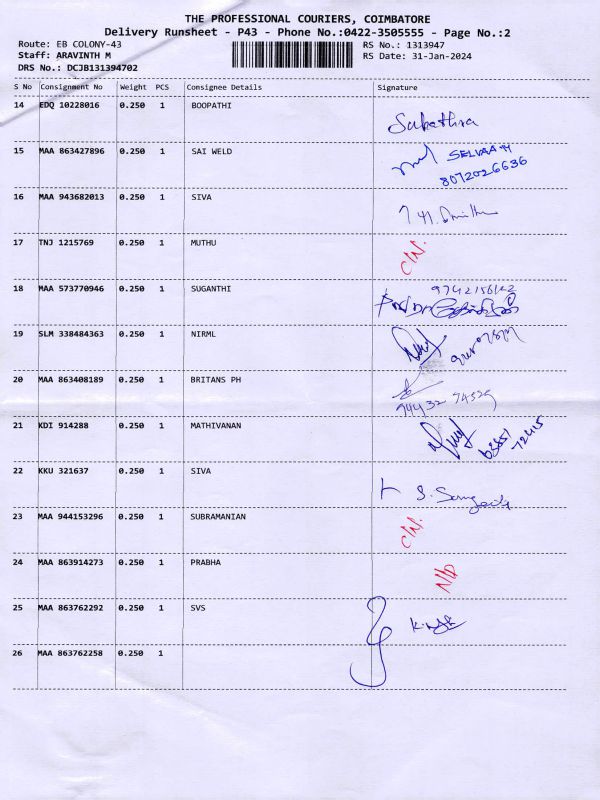 THE PROFESSIONAL COURIERS, COIMBATORE
Delivery Runsheet - P43 - Phone No.:0422-3505555 - Page No.:2
Route: EB COLONY-43 RS No.: 1313947
Staff: ARAVINTH M RS Date: 31-Jan-2024
DRS No.: DCJB131394702
S No Consignment No Weight PCS Consignee Details Signature
14 EDQ 10228016 0.250 1 BOOPATHI
Sukathra
15 MAA 863427896 0.250 1 SAI WELD
SELVAA M
8072026636
16 MAA 943682013 0.250 1 SIVA
17 TNJ 1215769 0.250 1 MUTHU
C/N.
18 MAA 573770946 0.250 1 SUGANTHI
19 SLM 338484363 0.250 1 NIRML
20 MAA 863408189 0.250 1 BRITANS PH
94432 74529
21 KDI 914288 0.250 1 MATHIVANAN
72415
22 KKU 321637 0.250 1 SIVA
S. Sangeeth
23 MAA 944153296 0.250 1 SUBRAMANIAN
C/N.
24 MAA 863914273 0.250 1 PRABHA
N/D
25 MAA 863762292 0.250 1 SVS
26 MAA 863762258 0.250 1